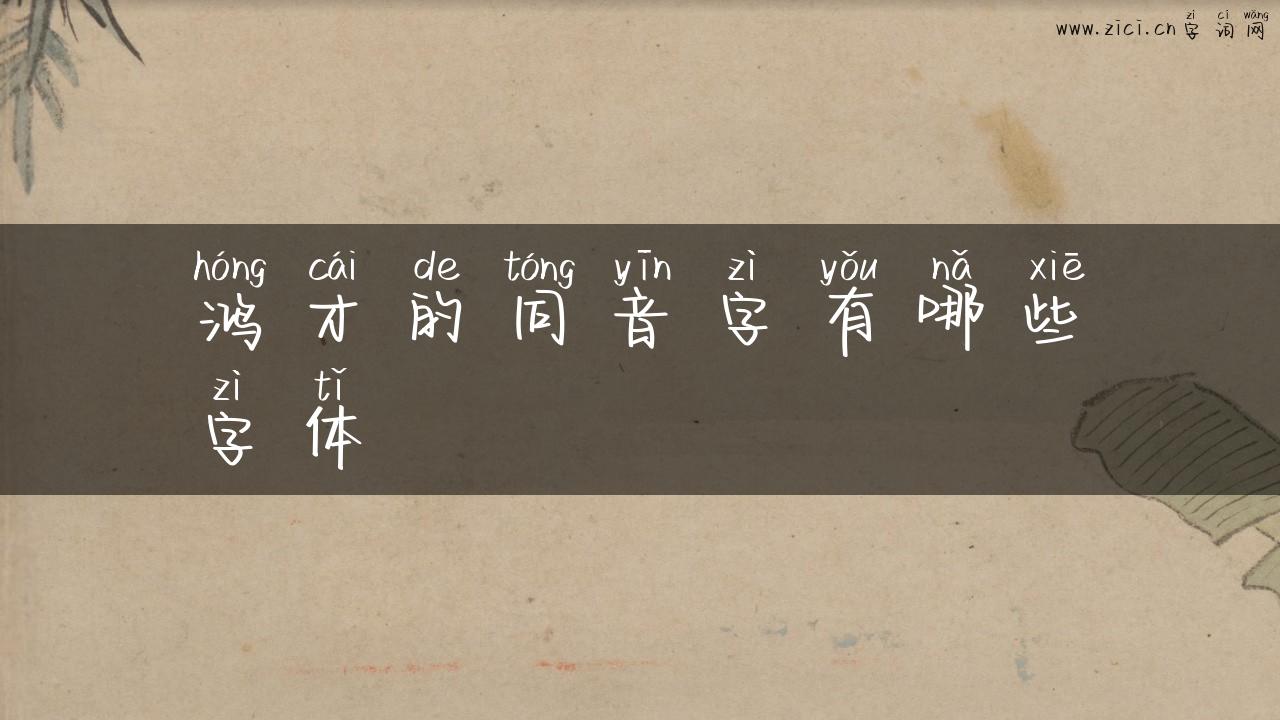 zì cí wǎng
www.zici.cn 字词网
hóng cái de tóng yīn zì yǒu nǎ xiē
鸿才的同音字有哪些
zì tǐ
字体